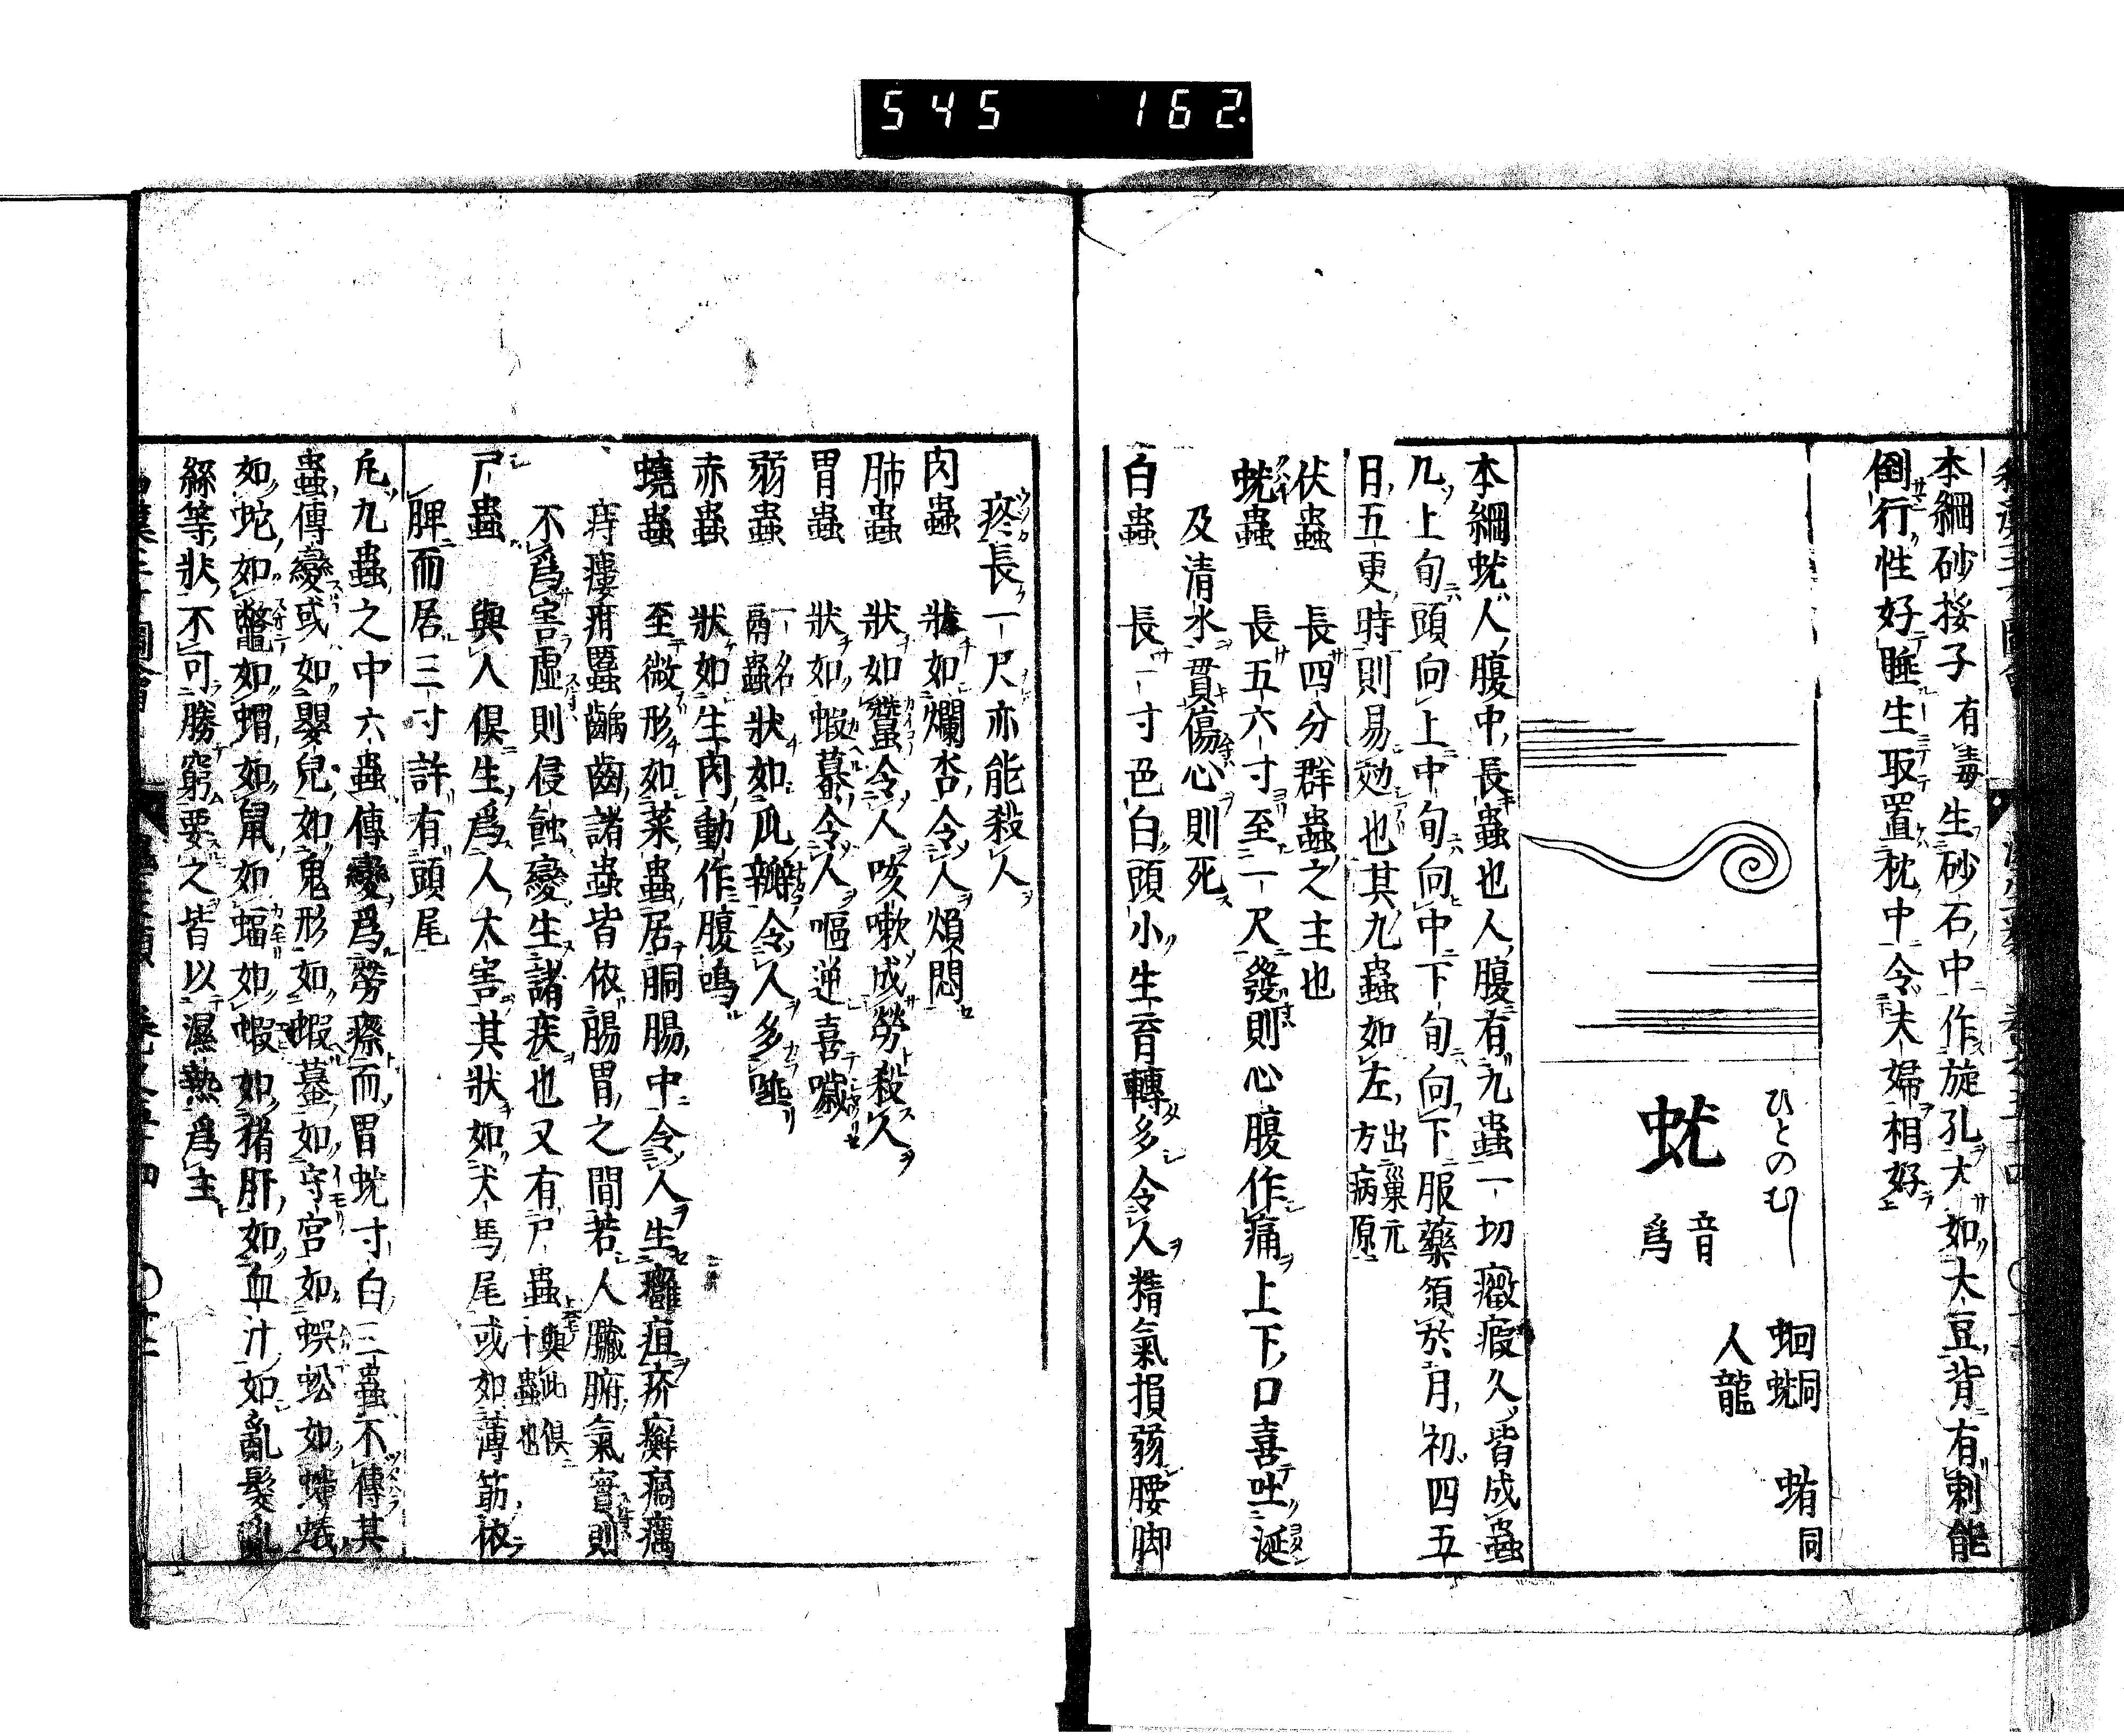 545 162.
本綱砂挼子有毒生砂石中作旋孔大如大豆背有刺能
倒行性好睡生取置枕中令夫婦相好
ひとのむし
蚘
音爲
蛔蚘同 蛕同
人龍
本綱蚘人腹中長蟲也人腹有九蟲一切癥瘕久皆成蟲
凡上旬頭向上中旬向中下旬向下服藥須於月初四五
日五更時則易効也其九蟲如左出巢元方病原
伏蟲 長四分群蟲之主也
蚘蟲 長五六寸至一尺發則心腹作痛上下口喜吐涎
及清水貫傷心則死
白蟲 長一寸色白頭小生育轉多令人精氣損弱腰脚
疼長一尺亦能殺人
肉蟲 狀如爛杏令人煩悶
肺蟲 狀如蠶令人咳嗽成勞殺人
胃蟲 狀如蝦蟇令人嘔逆喜噦
弱蟲 一名鬲蟲狀如瓜瓣令人多唾
赤蟲 狀如生肉動作腹鳴
蟯蟲 至微形如菜蟲居胴腸中令人生癰疽疥癬瘑癘
痔瘻疳䘌齲齒諸蟲皆依腸胃之間若人臟腑氣實則
不爲害虛則侵蝕變生諸疾也又有尸蟲與此俱十蟲也
尸蟲 與人俱生爲人大害其狀如犬馬尾或如薄筋依
脾而居三寸許有頭尾
凡九蟲之中六蟲傳變爲勞瘵而胃蚘寸白三蟲不傳其
蟲傳變或如嬰兒如鬼形如蝦蟇如守宮如蜈蚣如螻蟻
如蛇如鼈如蝟如鼠如蝠如蝦如猪肝如血汁如亂髮亂
絲等狀不可勝窮要之皆以濕熱爲主